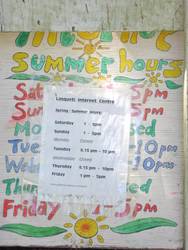 summer hours
Linquest Internet Centre
Spring / Summer Hours
Saturday 1 - 5pm
Sunday 1 - 5pm
Monday Closed
Tuesday 6.15 pm - 10 pm
Wednesday Closed
Thursday 6.15 pm - 10pm
Friday 1 pm - 5pm
Sat 5pm
Sun 5pm
Mo sed
Tue 10pm
Wed 10pm
Thu sed
Friday 1-5pm